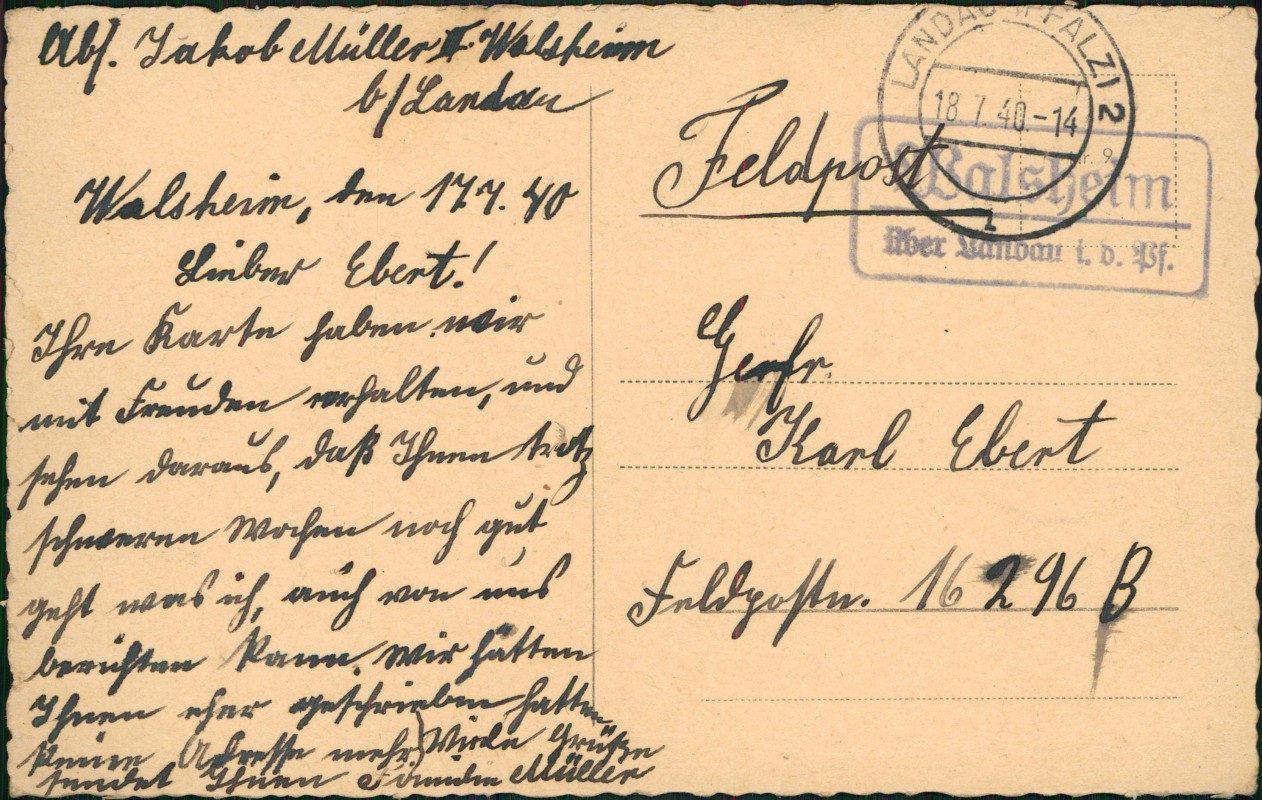 Abs. Jakob Müller II. Walsheim
b/Landau
Walsheim, den 17.7.40
Lieber Ebert!
Ihre Karte haben wir
mit Freuden erhalten, und
sehen daraus, daß Ihnen trotz
schweren Wochen noch gut
geht was ich, auch von uns
berichten kann. Wir hätten
Ihnen eher geschrieben hatten
keine Adresse mehr. Viele Grüße
sendet Ihnen Familie Müller
LANDAU (PFALZ) 2
18.7.40.-14
Feldpost
Walsheim
über Landau i. d. Pf.
Gerfr.
Karl Ebert
Feldpostn. 16 296 B